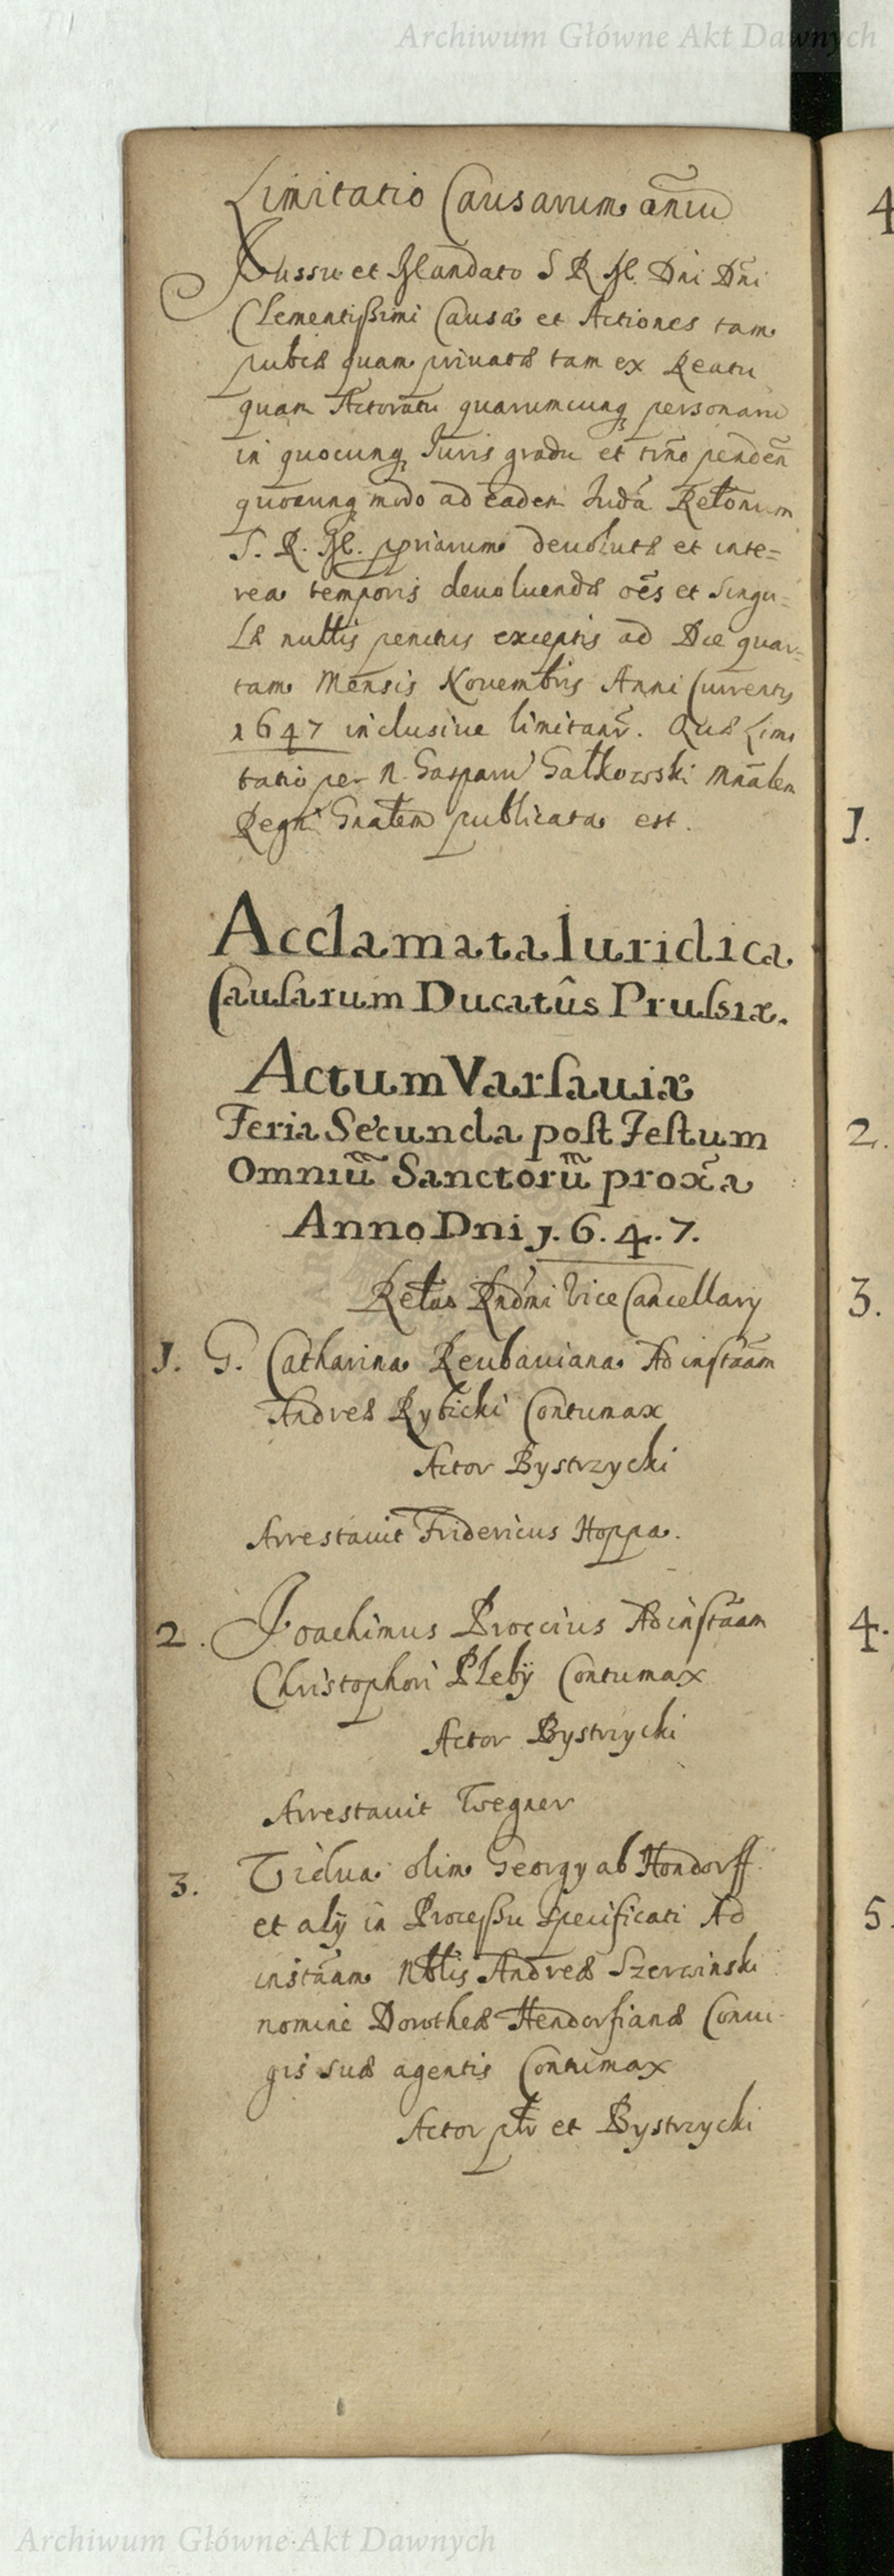 Archiwum Główne Akt Dawnych
Limitatio Causarum om̃iũ
Jussu et Mandato S R M. Dni Dñi
Clementissimi Causæ et Actiones tam
publcæ quam priuatæ tam ex Reatu
quam Actoratu quarumcunq personarũ
in quocunq Iuris gradu et tmõ penden̄
quocunq modo ad eadem Iudã
S. R. M. devolutæ et inte=
rea temporis devoluendæ oẽs et Singu=
læ nullis penitus exceptis ad Die quar=
tam Mensis Novembris Anni Currentis
1647 inclusive limitanr̃. Quæ Limi
tatio per N. Gasparũ Gałkowski Mñalem
Regni Gnalem publicata est.
Acclamata Iuridica
Causarum Ducatûs Prussiæ.
Actum Varsauiæ
Feria Secunda post Festum
Omniũ Sanctorũ prox̃a
Anno Dni 1.6.4.7.
Retus Rndmi Vice Cancellary
1. G. Catharina Reubaviana Ad instãam
Andreæ Rybicki Contumax
Actor Bystrzycki
Arrestavit Fridericus Hoppa.
2. Joachimus Broccius Ad instãam
Christophori Plebÿ Contumax
Actor Bystrzycki
Arrestavit Wegner
3. Vidua olim Georgy ab Hondorff
et alÿ in Processu Specificati Ad
instãam Nblis Andreæ Szerwinski
nomine Dorotheæ Hendorfianæ Coniu-
gis suæ agentis Contumax
Actor ptr et Bystrzycki
4
1.
2.
3.
4.
5.
Archiwum Główne Akt Dawnych